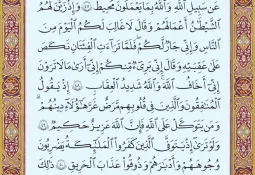 عَن سَبِيلِ ٱللَّهِ وَٱللَّهُ بِمَا يَعْمَلُونَ مُحِيطٌ ٤٧ وَإِذْ زَيَّنَ لَهُمُ
ٱلشَّيْطَٰنُ أَعْمَٰلَهُمْ وَقَالَ لَا غَالِبَ لَكُمُ ٱلْيَوْمَ مِنَ
ٱلنَّاسِ وَإِنِّي جَارٌ لَّكُمْ فَلَمَّا تَرَآءَتِ ٱلْفِئَتَانِ نَكَصَ
عَلَىٰ عَقِبَيْهِ وَقَالَ إِنِّي بَرِيٓءٌ مِّنكُمْ إِنِّيٓ أَرَىٰ مَا لَا تَرَوْنَ
إِنِّيٓ أَخَافُ ٱللَّهَ وَٱللَّهُ شَدِيدُ ٱلْعِقَابِ ٤٨ إِذْ يَقُولُ
ٱلْمُنَٰفِقُونَ وَٱلَّذِينَ فِي قُلُوبِهِم مَّرَضٌ غَرَّ هَٰٓؤُلَآءِ دِينُهُمْ
وَمَن يَتَوَكَّلْ عَلَى ٱللَّهِ فَإِنَّ ٱللَّهَ عَزِيزٌ حَكِيمٌ ٤٩
وَلَوْ تَرَىٰٓ إِذْ يَتَوَفَّى ٱلَّذِينَ كَفَرُوا۟ ٱلْمَلَٰٓئِكَةُ يَضْرِبُونَ
وُجُوهَهُمْ وَأَدْبَٰرَهُمْ وَذُوقُوا۟ عَذَابَ ٱلْحَرِيقِ ٥٠ ذَٰلِكَ